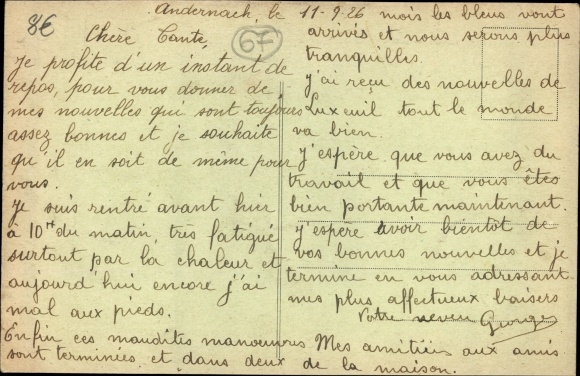 8€
67
Andernach, le 11-9-26
Chère Tante,
Je profite d'un instant de
repos, pour vous donner de
mes nouvelles qui sont toujours
assez bonnes et je souhaite
qu'il en soit de même pour
vous.
Je suis rentré avant hier
à 10 rt du matin, très fatigué
surtout par la chaleur et
aujourd'hui encore j'ai
mal aux pieds.
Enfin ces maudites manœuvres
sont terminées et dans deux
mois les bleus vont
arrivés et nous serons plus
tranquilles.
J'ai reçu des nouvelles de
Luxeuil tout le monde
va bien.
J'espère que vous avez du
travail et que vous êtes
bien portante maintenant.
J'espère avoir bientôt de
vos bonnes nouvelles et je
termine en vous adressant
mes plus affectueux baisers
Votre neveu Georges
Mes amitiés aux amis
de la maison.